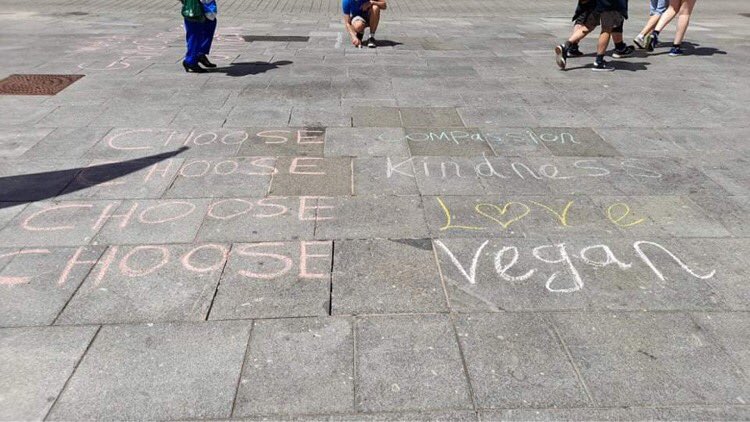 CHOOSE Compassion
CHOOSE Kindness
CHOOSE Love
CHOOSE Vegan